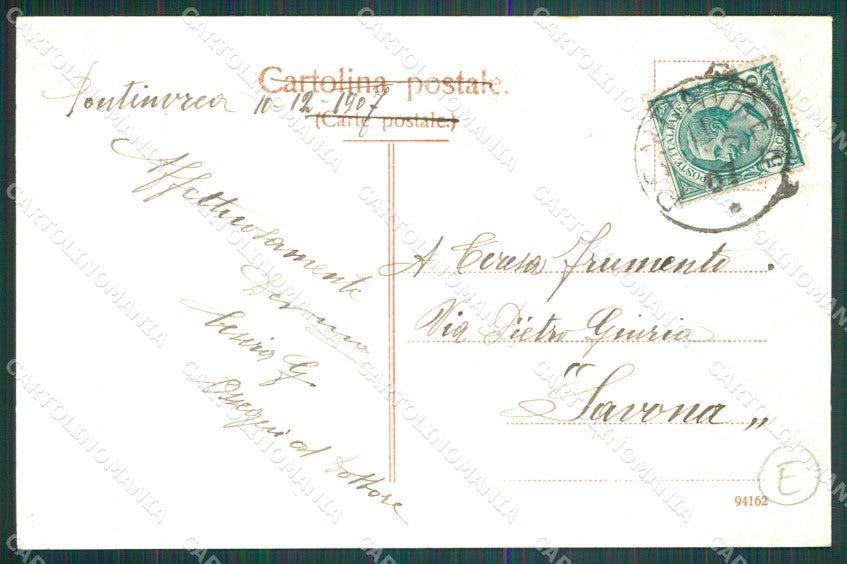 Cartolina postale.
(Carte postale.)
Pontinvrea 10-12-1907
Affettuosamente
Cesira G.
Ossequi al dottore
POSTE ITALIANE
A Teresa Frumento.
Via Pietro Giuria
"Savona"
94162
E
CARTOLINOMANIA